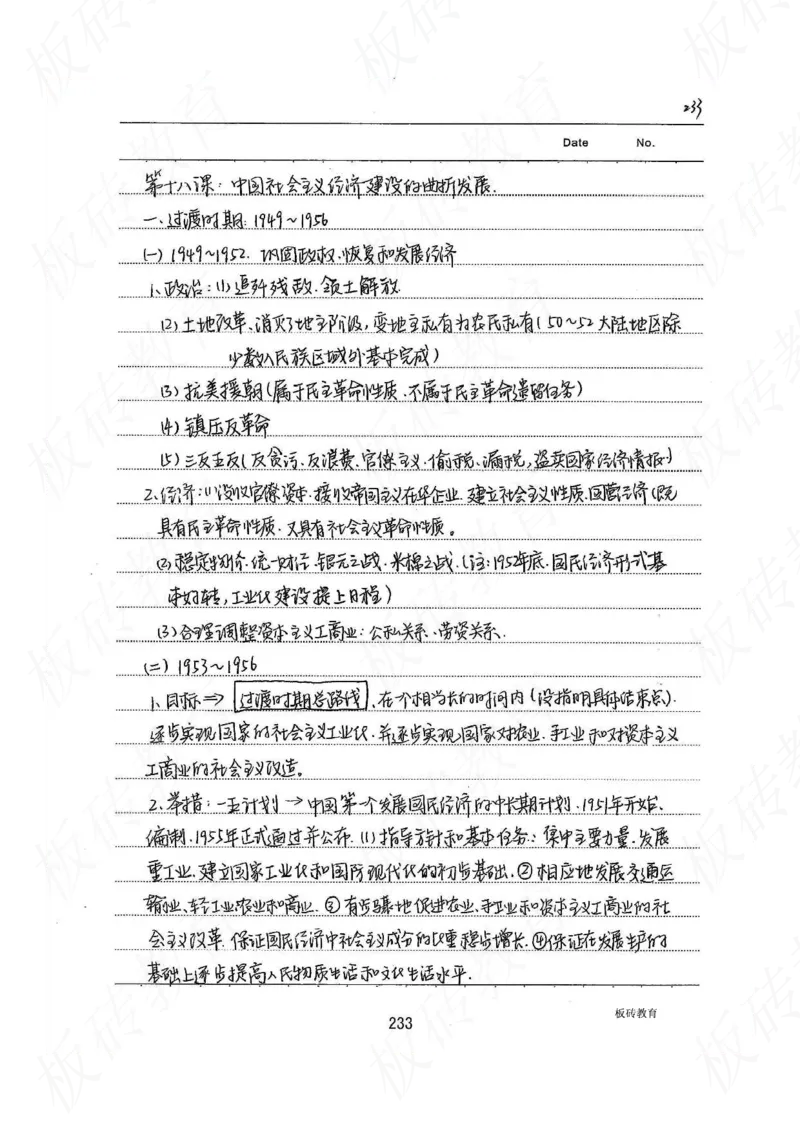 233
Date No.
第十八课：中国社会主义经济建设的曲折发展.
一、过渡时期：1949～1956
(一) 1949～1952. 巩固政权.恢复和发展经济
1、政治：(1)追歼残敌.领土解放
(2)土地改革、消灭了地主阶级，变地主私有为农民私有(50～52大陆地区除
少数人民族区域外基本完成)
(3)抗美援朝(属于民主革命性质.不属于民主革命遗留任务)
(4)镇压反革命
(5)三反五反(反贪污.反浪费.官僚主义.偷税、漏税，盗卖国家经济情报)
2、经济：(1)没收官僚资本.接收帝国主义在华企业.建立社会主义性质.国营经济(既
具有民主革命性质.又具有社会主义革命性质。
(2)稳定物价.统一财经.银元之战.米棉之战.(注：1952年底.国民经济形式基
本好转，工业化建设提上日程)
(3)合理调整资本主义工商业：公私关系.劳资关系.
(二) 1953～1956
1、目标⇒过渡时期总路线.在一个相当长的时间内(没指明具体结束点).
逐步实现国家的社会主义工业化.并逐步实现国家对农业.手工业和对资本主义
工商业的社会主义改造。
2、举措：一五计划→中国第一个发展国民经济的中长期计划.1951年开始、
编制.1955年正式通过并公布.(1)指导方针和基本任务：集中主要力量.发展
重工业.建立国家工业化和国防现代化的初步基础.②相应地发展交通运
输业、轻工业.农业和商业.③有步骤地促进农业、手工业和资本主义工商业的社
会主义改革.保证国民经济中社会主义成分的比重稳步增长.④保证在发展生产的
基础上逐步提高人民物质生活和文化生活水平.
板砖教育
233